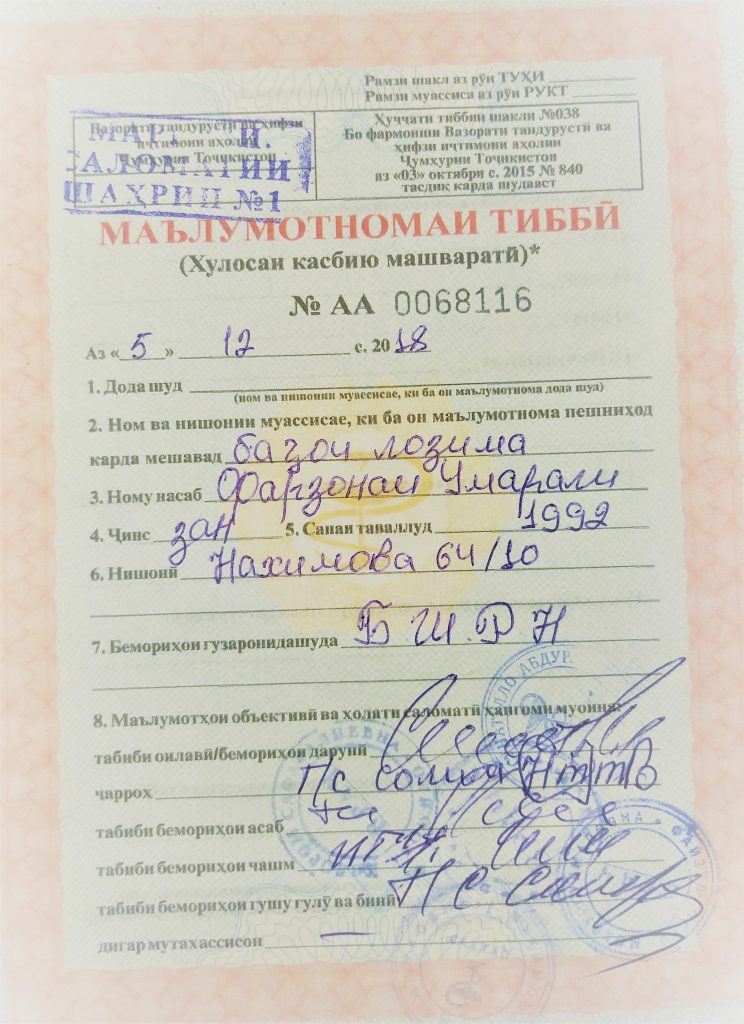 Рамзи шакл аз рӯи ТУҲИ
Рамзи муассиса аз рӯи РУКТ
Вазорати тандурустӣ ва ҳифзи
иҷтимоии аҳолии
Ҷумҳурии Тоҷикистон
САЛОМАТИИ
ШАҲРИИ №1
Ҳуҷҷати тиббии шакли №038
Бо фармоиши Вазорати тандурустӣ ва
ҳифзи иҷтимоии аҳолии
Ҷумҳурии Тоҷикистон
аз «03» октябри с. 2015 № 840
тасдиқ карда шудааст
МАЪЛУМОТНОМАИ ТИББӢ
(Хулосаи касбию машваратӣ)*
№ АА 0068116
Аз « 5 » 12 с. 2018
1. Дода шуд
(ном ва нишонии муассисае, ки ба он маълумотнома дода шуд)
2. Ном ва нишонии муассисае, ки ба он маълумотнома пешниҳод
карда мешавад ба ҷои лозима
3. Ному насаб Фарзонаи Умарали
4. Ҷинс зан 5. Санаи таваллуд 1992
6. Нишонӣ Нахимова 64/10
7. Бемориҳои гузаронидашуда Б Ш Р Н
8. Маълумотҳои объективӣ ва ҳолати саломатӣ ҳангоми муоина:
табиби оилавӣ/бемориҳои дарунӣ
ҷарроҳ П/с солим
табиби бемориҳои асаб
табиби бемориҳои чашм
табиби бемориҳои гушу гулӯ ва бинӣ
дигар мутахассисон —